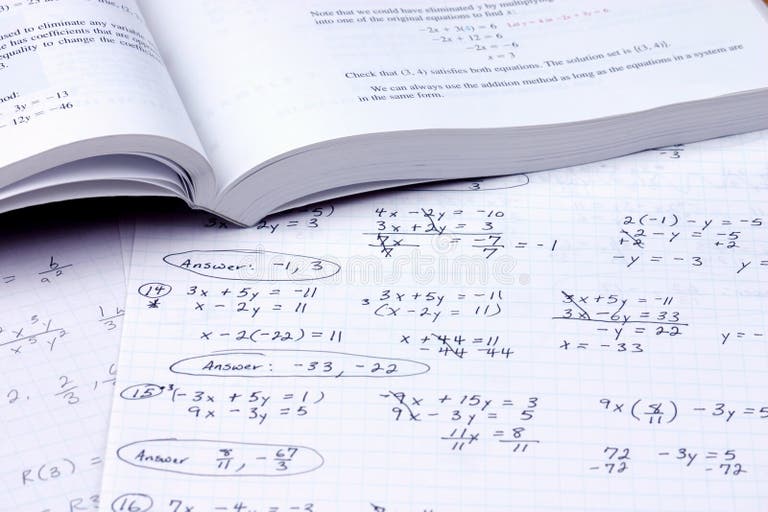 used to eliminate any variable
e has coefficients that are op
equality to change the coefficient
3.
3y = −13
− 12y = −46
Note that we could have eliminated y by multiplying
into one of the original equations to find x:
−2x + 3(4) = 6
−2x + 12 = 6
−2x = −6
x = 3
Check that (3, 4) satisfies both equations. The solution set is {(3, 4)}.
We can always use the addition method as long as the equations in a system are
in the same form.
3
-3
2y = 3
4x - 2y = -10
3x + 2y = 3
7x = -7 = -1
7 7
2(-1) - y = -5
-2 - y = -5
+2 +2
-y = -3
Answer: -1, 3
14
3x + 5y = -11
x - 2y = 11
x - 2(-22) = 11
3 3x + 5y = -11
(x - 2y = 11)
x + 44 = 11
-44 -44
3x + 5y = -11
3x - 6y = 33
-y = 22
x = -33
y = -
Answer: -33, -22
15
3(-3x + 5y = 1)
9x - 3y = 5
-9x + 15y = 3
9x - 3y = 5
11x = 8
11 11
9x (8/11) - 3y = 5
72 - 3y = 5
-72 -72
Answer 8/11, -67/3
16
7x - 4y = -3
= b/a²
x³y
x⁵y²
2. 2/3,
R(3) =
dreamstime